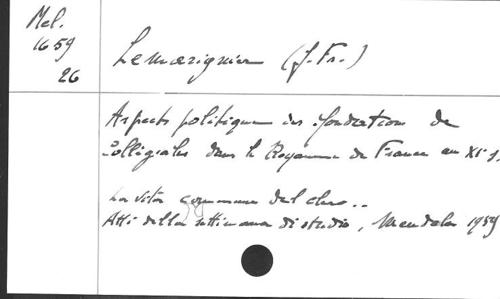 Mel.
1659
26
Lemarignier (J. Fr.)
Aspects politiques des fondations de
collégiales dans le Royaume de France au XIe s.
La vita comune del clero..
Atti della settimana di studio, Mendola 1959